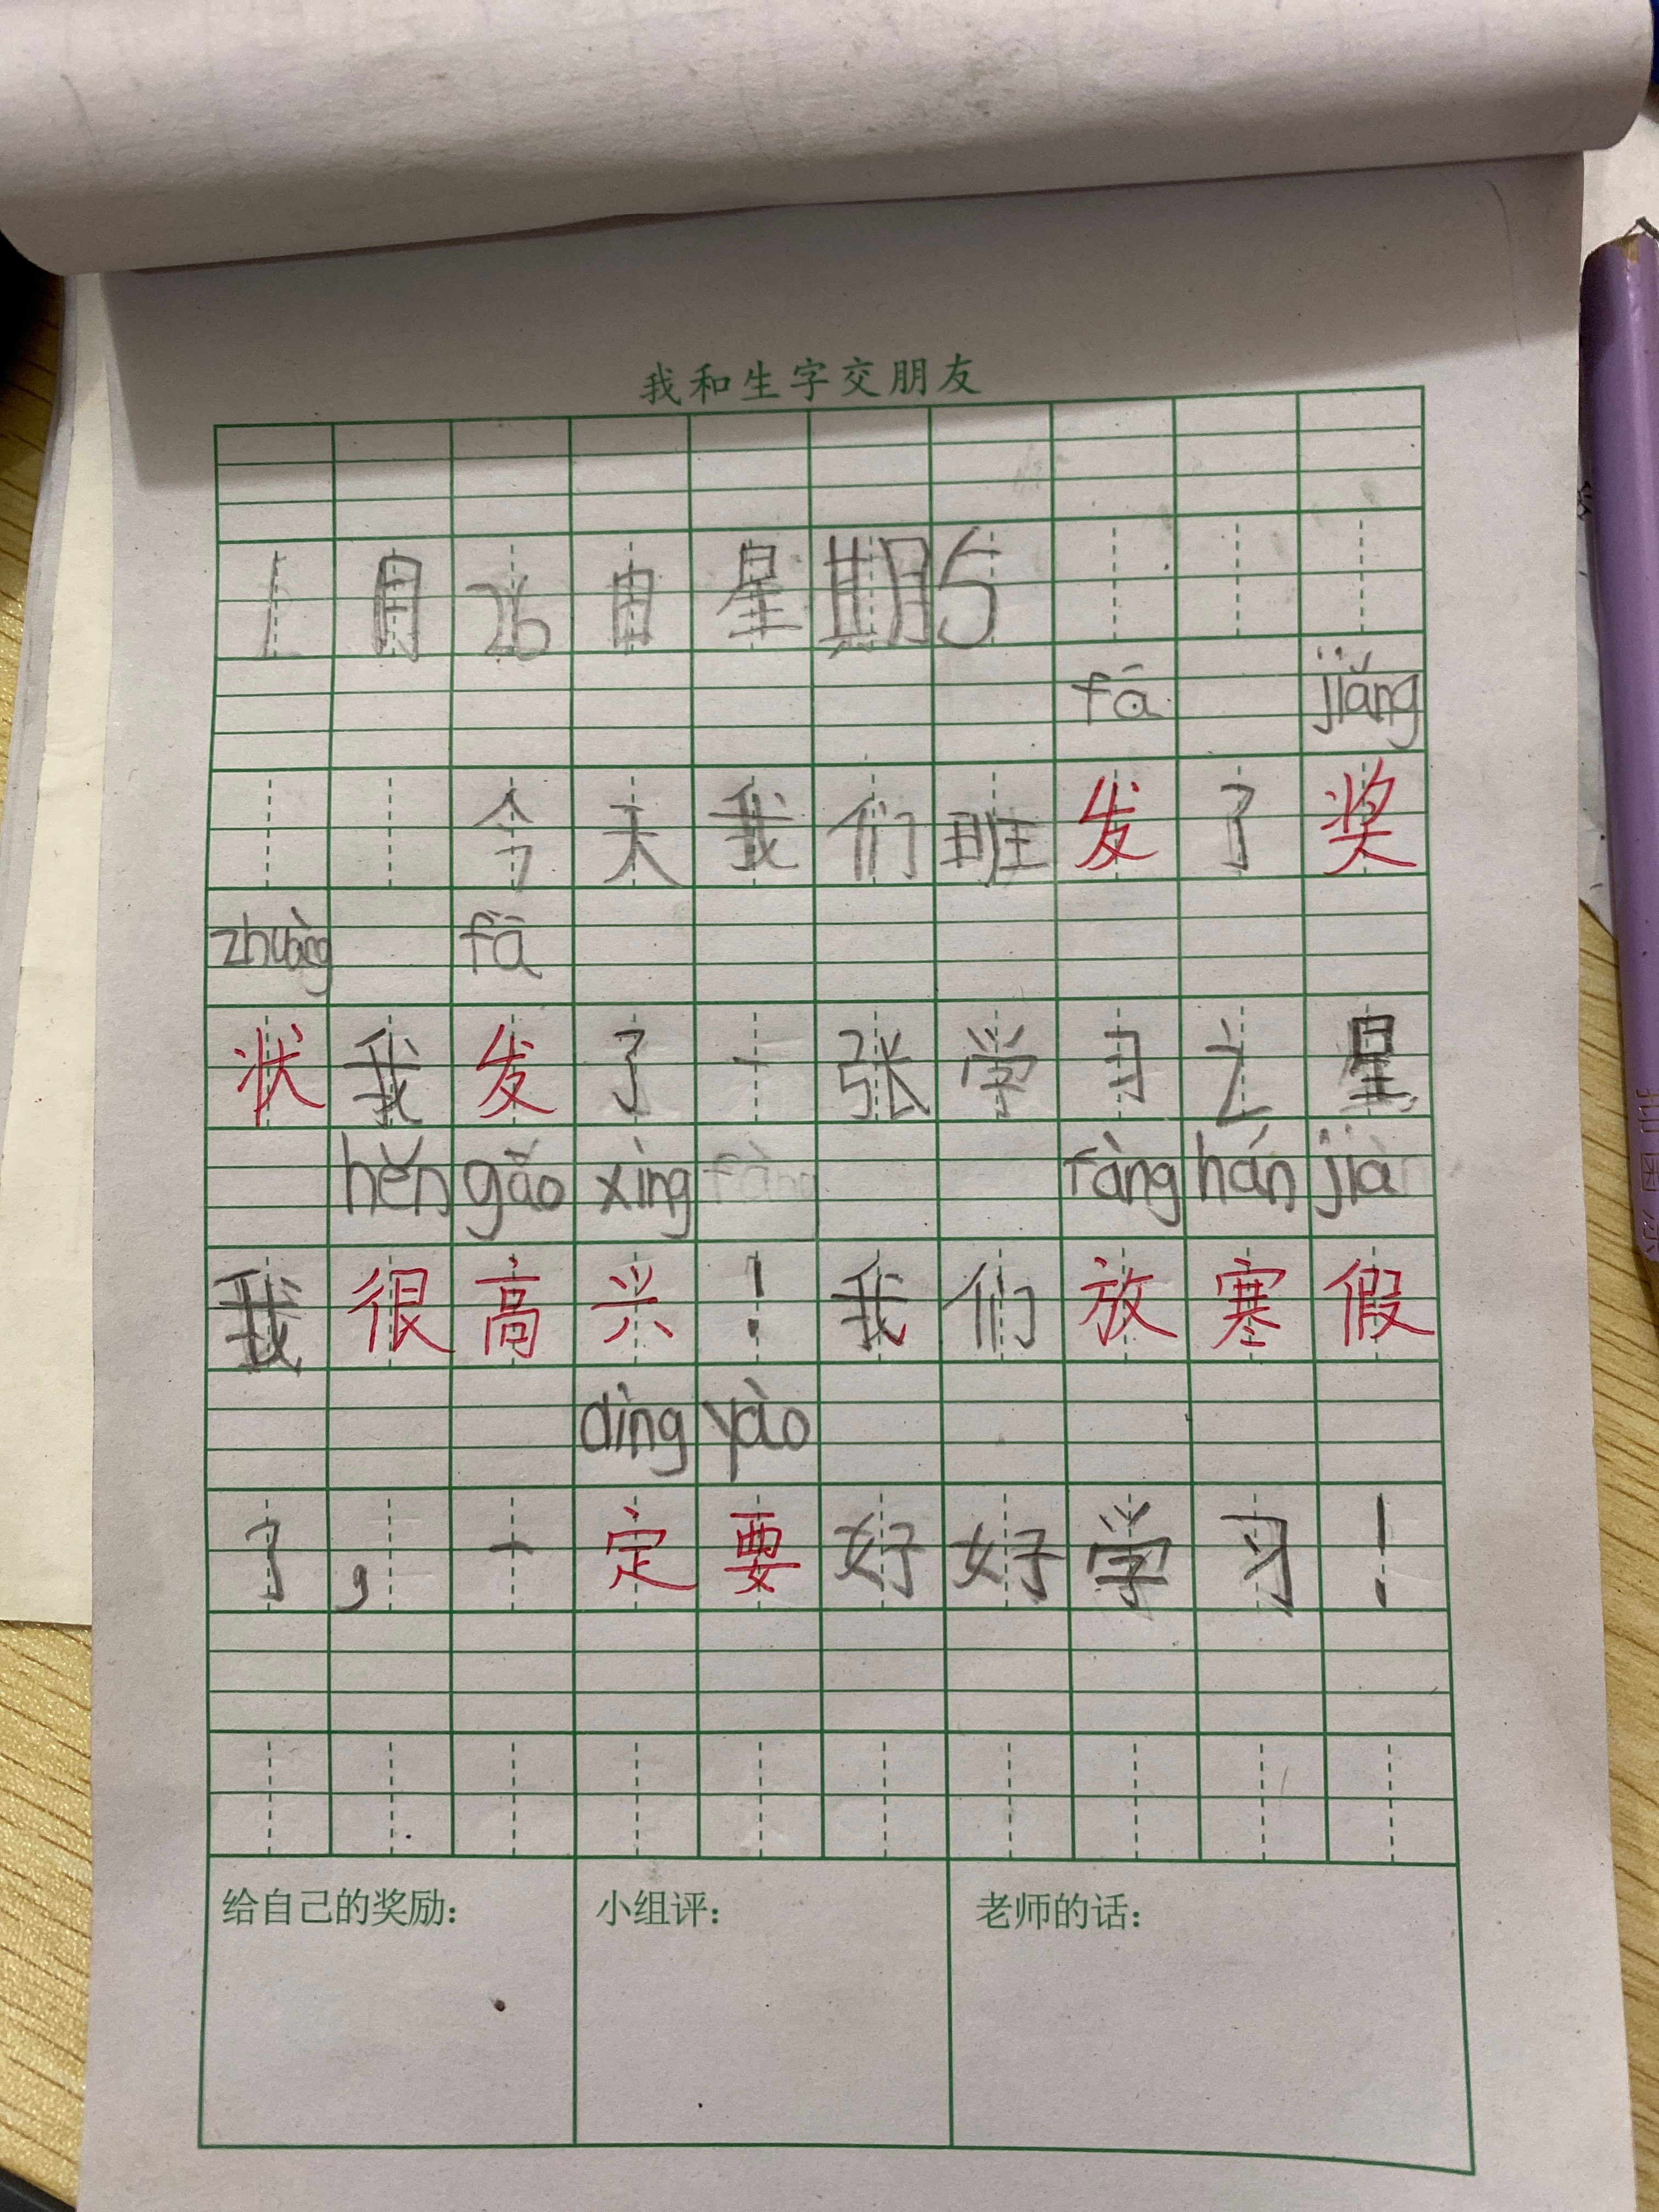 我和生字交朋友
1月26日星期5
fā jiǎng
今天我们班发了奖
zhuàng fā
状我发了一张学习之星
hěn gāo xìng fàng fàng hán jià
我很高兴！我们放寒假
dìng yào
了，一定要好好学习！
给自己的奖励：
小组评：
老师的话：